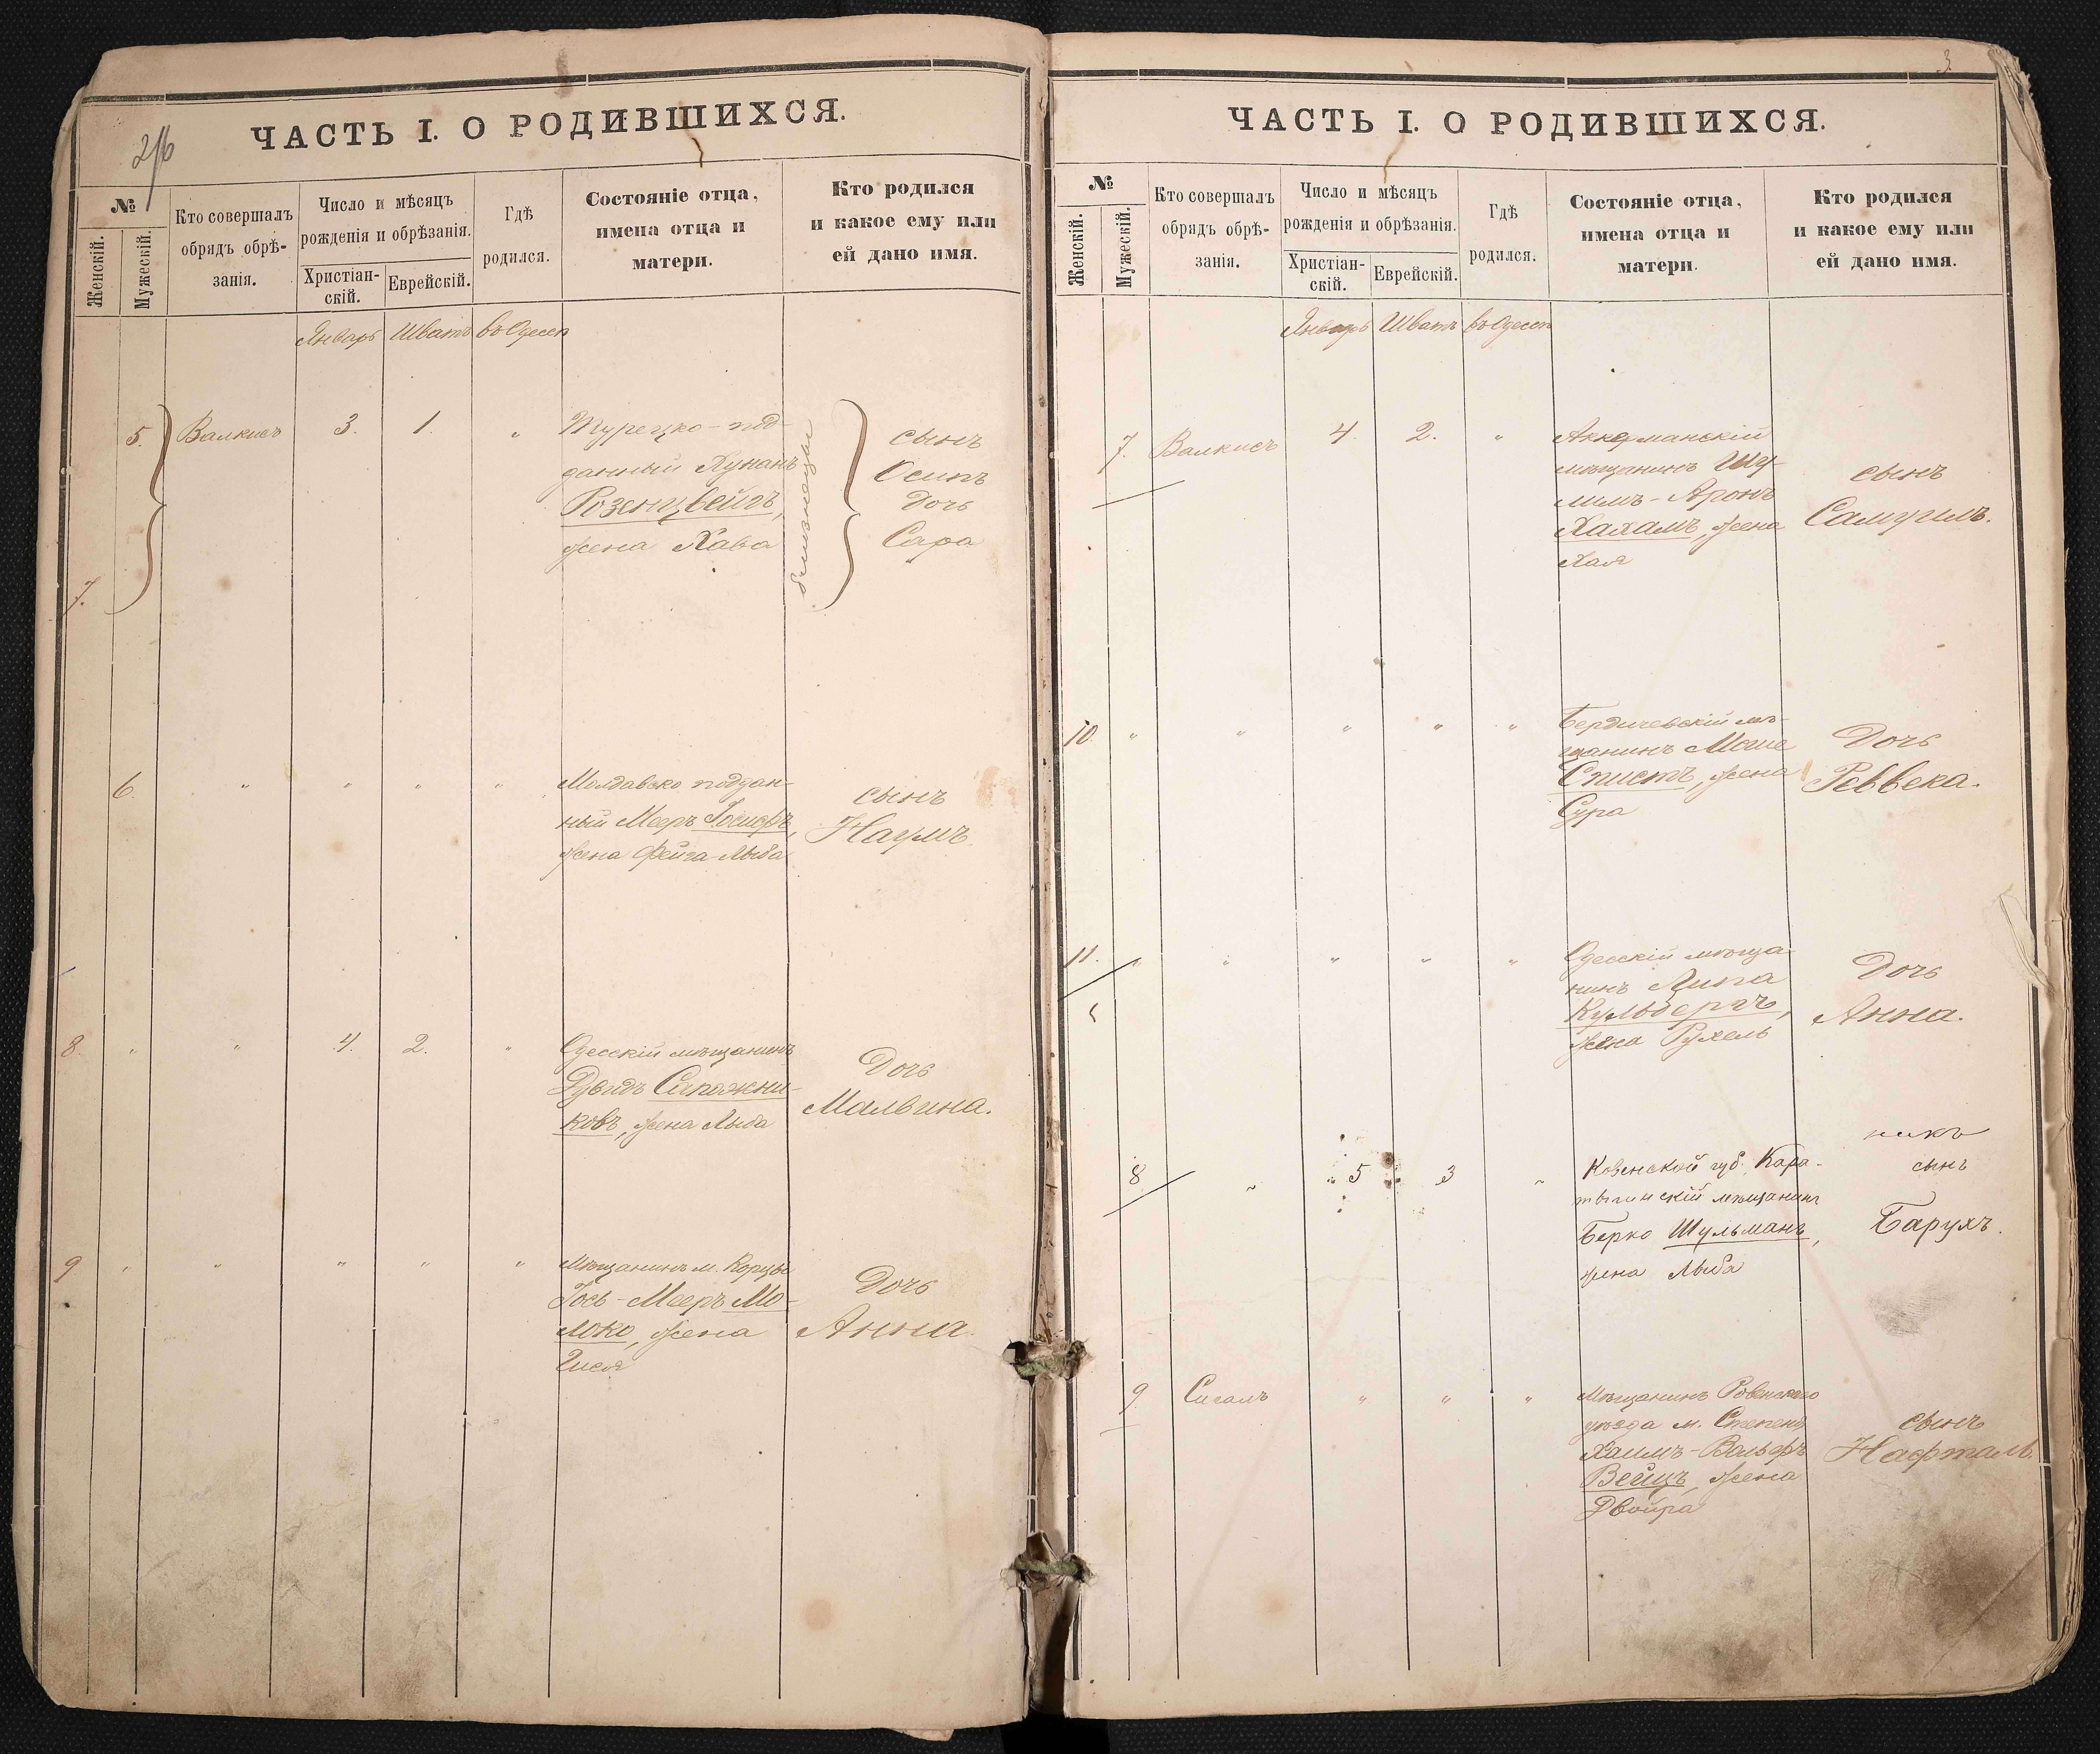 ЧАСТЬ I. О РОДИВШИХСЯ.
№
Женскій.
Мужескій.
Кто совершалъ
обрядъ обрѣ-
занія.
Число и мѣсяцъ
рожденія и обрѣзанія.
Христіан-
скій.
Еврейскій.
Гдѣ
родился.
Состояніе отца,
имена отца и
матери.
Кто родился
и какое ему или
ей дано имя.
Январь Шватъ въ Одессѣ
5. Валкисъ 3. 1. „
7.
Турецко-под-
данный Хунанъ
Розенцвейгъ,
жена Хава
близнецы
сынъ
Осипъ
дочь
Сара
6. „ „ „ „
Молдавско поддан-
ный Мееръ
жена Фейга-Лыба
сынъ
Наумъ.
8. „ „ 4. 2. „
Одесскій мѣщанинъ
Дувидъ Сапожни-
ковъ, жена Лыба
Дочь
Мальвина.
9 „ „ „ „ „
Мѣщанинъ м. Корцы
Іось-Мееръ Мо-
локо, жена
Гися
Дочь
Анна.
3
ЧАСТЬ I. О РОДИВШИХСЯ.
№
Женскій.
Мужескій.
Кто совершалъ
обрядъ обрѣ-
занія.
Число и мѣсяцъ
рожденія и обрѣзанія.
Христіан-
скій.
Еврейскій.
Гдѣ
родился.
Состояніе отца,
имена отца и
матери.
Кто родился
и какое ему или
ей дано имя.
Январь Шватъ въ Одессѣ
7. Валкисъ 4. 2. „
Аккерманскій
мѣщанинъ Шу-
лимъ-Аронъ
Хахамъ, жена
Хая
сынъ
Самуилъ.
10. „ „ „ „ „
Бердичевскій мѣ-
щанинъ Моше
Спистъ, жена
Сура
Дочь
Реввека.
11. „ „ „ „ „
Одесскій мѣща-
нинъ Липа
Кульбергъ,
жена Рухель
Дочь
Анна.
8 „ 5 3 „
Ковенской губ.
мѣщанинъ
Берко Шульманъ,
жена Лыба
сынъ
Барухъ.
9. Сигалъ „ „ „
Мѣщанинъ Ровенскаго
уѣзда м. Степень
Хаимъ-Вольфъ
Вейцъ, жена
Двойра
сынъ
Нафталь.